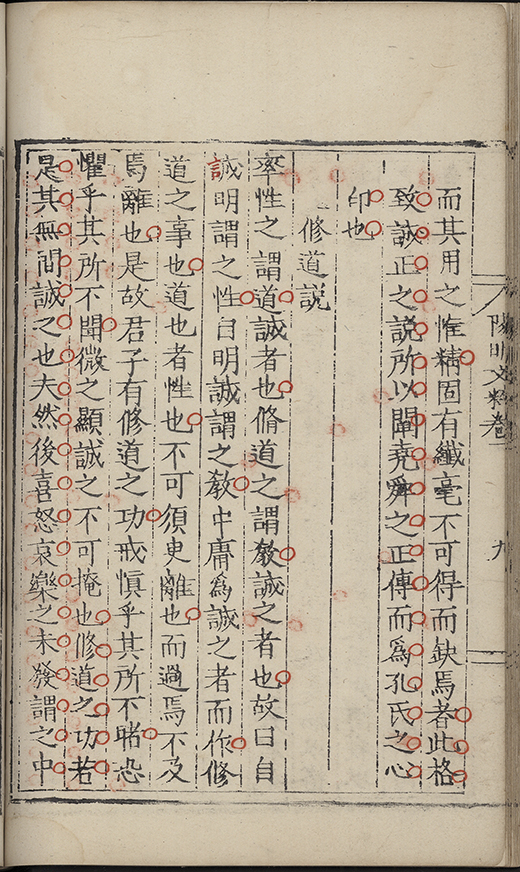 陽明文粹卷
九
而其用之惟精固有纖毫不可得而缺焉者此格
致誠正之説所以闡堯舜之正傳而爲孔氏之心
印也
修道説
率性之謂道誠者也脩道之謂教誠之者也故曰自
誠明謂之性自明誠謂之教中庸爲誠之者而作修
道之事也道也者性也不可須臾離也而過焉不及
焉離也是故君子有修道之功戒慎乎其所不睹恐
懼乎其所不聞微之顯誠之不可掩也修道之功若
是其無間誠之也夫然後喜怒哀樂之未發謂之中